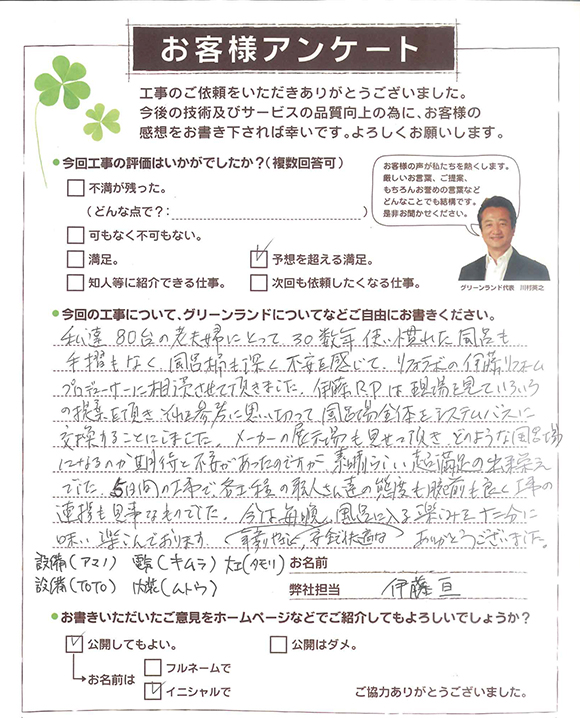 お客様アンケート
工事のご依頼をいただきありがとうございました。
今後の技術及びサービスの品質向上の為に、お客様の
感想をお書き下されば幸いです。よろしくお願いします。
●今回工事の評価はいかがでしたか?(複数回答可)
不満が残った。
(どんな点で?: )
可もなく不可もない。
満足。
予想を超える満足。
知人等に紹介できる仕事。
次回も依頼したくなる仕事。
お客様の声が私たちを熱くします。
厳しいお言葉、ご提案、
もちろんお誉めの言葉など
どんなことでも結構です。
是非お聞かせください。
グリーンランド代表 川村英之
●今回の工事について、グリーンランドについてなどご自由にお書きください。
私達80台の老夫婦にとって30数年使い慣れた風呂も
手摺もなく風呂桶も深く不安を感じて、リフォラボの伊藤リフォーム
プロデューサーに相談させて頂きました。伊藤RPは現場を見ていろいろ
の提案を頂き、それを参考に思い切って風呂場全体をシステムバスに
交換することにしました。メーカーの展示場も見せて頂き、どのような風呂場
になるのか期待と不安があったのですが素晴らしい超満足の出来栄え
でした。5日間の工事で各工種の職人さん達の態度も腕前も良く工事の
連携も見事なものでした。今は毎晩、風呂に入る楽しみを十二分に
味い楽しんでおります。 ありがとうございました。
設備(アマノ) 電気(キムラ) 大工(タモリ)
お名前
設備(TOTO) (ムトウ)
弊社担当 伊藤 亘
●お書きいただいたご意見をホームページなどでご紹介してもよろしいでしょうか?
公開してもよい。
公開はダメ。
お名前は
フルネームで
イニシャルで
ご協力ありがとうございました。